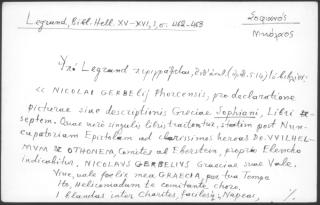 Legrand, Bibl. Hell. XV-XVI, 1, σ. 462-463
Σοφιανός
Νικόλαος
Ὑπὸ Legrand περιγράφεται,
« NICOLAI GERBELIJ Phorcensis, pro declaratione
picturae siue descriptionis Graeciae Sophiani, Libri
septem. Quae uerò singulis libris tractentur, statim post Nun-
cupatoriam Epistolam ad clarissimos heroas DD. VVILHEL-
MVM & OTHONEM, Comites ab Eberstein, proprio Elencho
indicabitur. NICOLAVS GERBELIVS Graeciae suae Vale.
Viue, uale foelix mea GRAECIA, per tua Tempe
Ito, Heliconiadum te comitante choro.
I blandas inter Charites, facilesq; Napaeas,